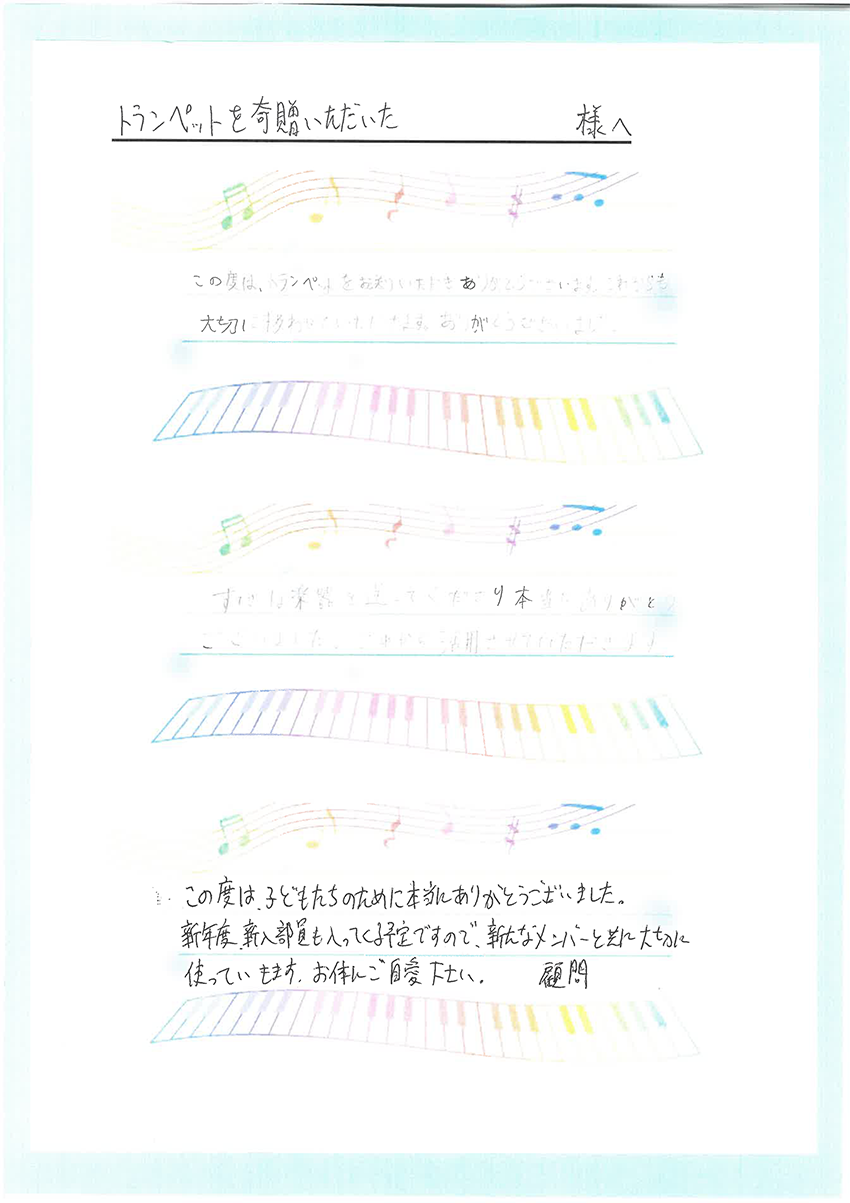 トランペットを寄贈いただいた 様へ
この度は、トランペットをお送りいただきありがとうございます。これからも
大切に使わせていただきます。ありがとうございました。
すてきな楽器を送ってくださり本当にありがとう
ございました。これから活用させていただきます
この度は、子どもたちのために本当にありがとうございました。
新年度、新入部員も入ってくる予定ですので、新たなメンバーと共に大切に
使っていきます。お体にご自愛下さい。 顧問